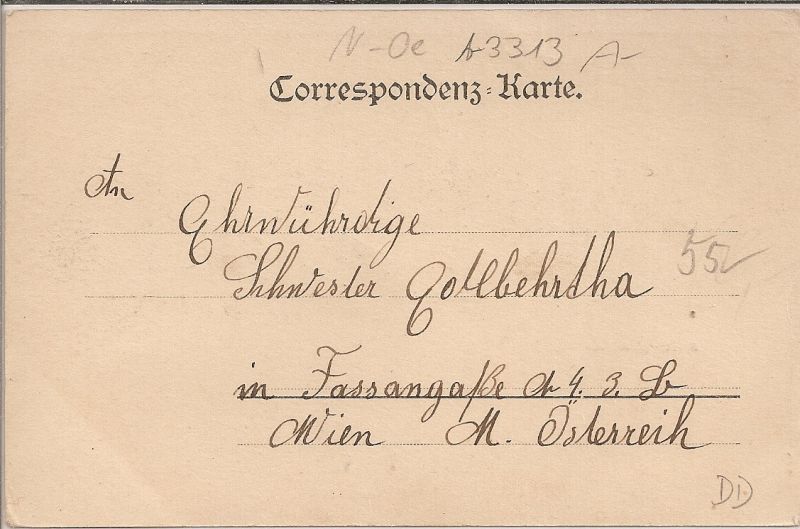 N-Oe b3313 A-
Correspondenz-Karte.
An
Ehrwührdige
Schwester Gottbehrtha
55
in Fassangaße 4. 3. B
Wien M. Östereih
DD